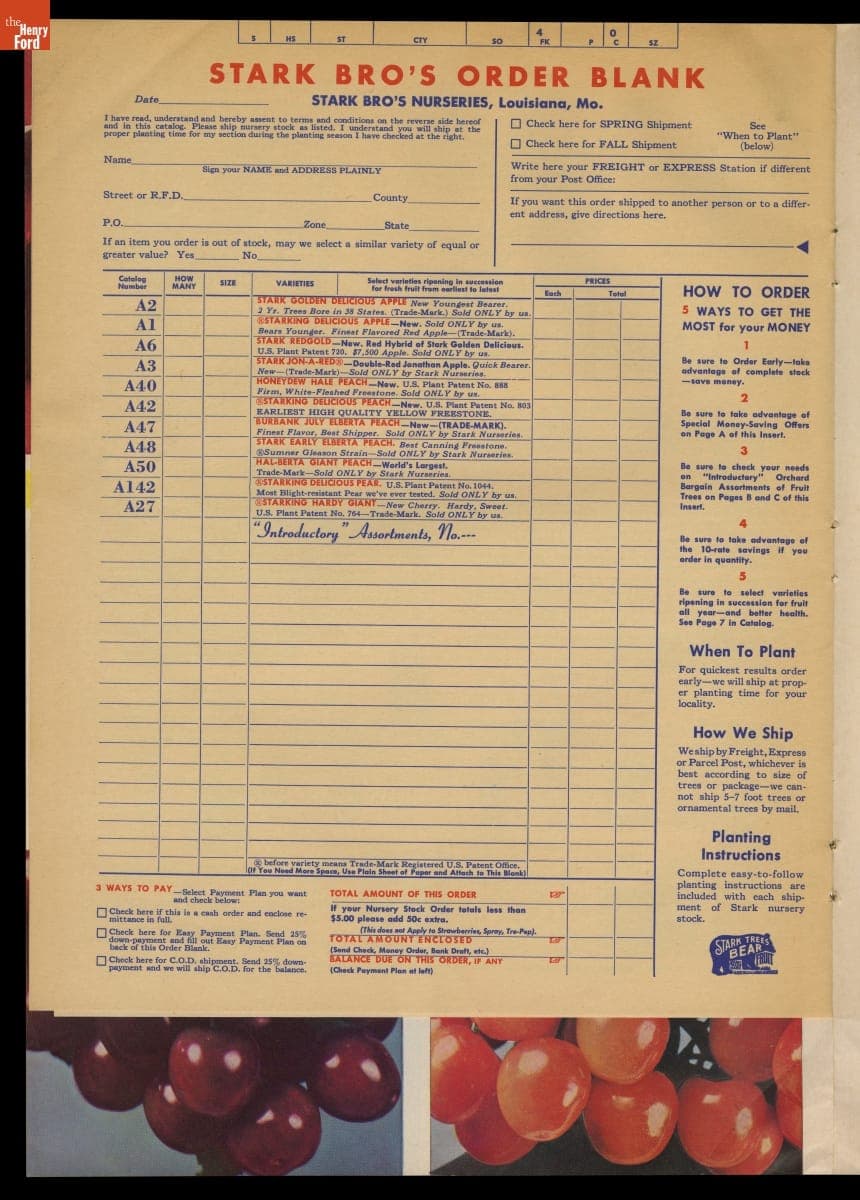 the
Henry
Ford
S HS ST CTY SO 4 FK P 0 C SZ
STARK BRO'S ORDER BLANK
Date
STARK BRO'S NURSERIES, Louisiana, Mo.
I have read, understand and hereby assent to terms and conditions on the reverse side hereof
and in this catalog. Please ship nursery stock as listed. I understand you will ship at the
proper planting time for my section during the planting season I have checked at the right.
Name
Sign your NAME and ADDRESS PLAINLY
Street or R.F.D. County
P.O. Zone State
If an item you order is out of stock, may we select a similar variety of equal or
greater value? Yes No
Check here for SPRING Shipment
Check here for FALL Shipment
See
"When to Plant"
(below)
Write here your FREIGHT or EXPRESS Station if different
from your Post Office:
If you want this order shipped to another person or to a differ-
ent address, give directions here.
Catalog
Number
HOW
MANY
SIZE
VARIETIES
Select varieties ripening in succession
for fresh fruit from earliest to latest
PRICES
Each Total
A2 STARK GOLDEN DELICIOUS APPLE New Youngest Bearer.
2 Yr. Trees Bore in 38 States. (Trade-Mark.) Sold ONLY by us.
A1 ®STARKING DELICIOUS APPLE—New. Sold ONLY by us.
Bears Younger. Finest Flavored Red Apple—(Trade-Mark).
A6 STARK REDGOLD—New. Red Hybrid of Stark Golden Delicious.
U.S. Plant Patent 720. $7,500 Apple. Sold ONLY by us.
A3 STARK JON-A-RED®—Double-Red Jonathan Apple. Quick Bearer.
New—(Trade-Mark)—Sold ONLY by Stark Nurseries.
A40 HONEYDEW HALE PEACH—New. U.S. Plant Patent No. 888
Firm, White-Fleshed Freestone. Sold ONLY by us.
A42 ®STARKING DELICIOUS PEACH—New. U.S. Plant Patent No. 803
EARLIEST HIGH QUALITY YELLOW FREESTONE.
A47 BURBANK JULY ELBERTA PEACH—New—(TRADE-MARK).
Finest Flavor, Best Shipper. Sold ONLY by Stark Nurseries.
A48 STARK EARLY ELBERTA PEACH. Best Canning Freestone.
®Sumner Gleason Strain—Sold ONLY by Stark Nurseries.
A50 HAL-BERTA GIANT PEACH—World's Largest.
Trade-Mark—Sold ONLY by Stark Nurseries.
A142 ®STARKING DELICIOUS PEAR. U.S. Plant Patent No. 1044.
Most Blight-resistant Pear we've ever tested. Sold ONLY by us.
A27 ®STARKING HARDY GIANT—New Cherry. Hardy, Sweet.
U.S. Plant Patent No. 764—Trade-Mark. Sold ONLY by us.
"Introductory" Assortments, No.---
® before variety means Trade-Mark Registered U.S. Patent Office.
(If You Need More Space, Use Plain Sheet of Paper and Attach to This Blank)
3 WAYS TO PAY—Select Payment Plan you want
and check below:
Check here if this is a cash order and enclose re-
mittance in full.
Check here for Easy Payment Plan. Send 25%
down-payment and fill out Easy Payment Plan on
back of this Order Blank.
Check here for C.O.D. shipment. Send 25% down-
payment and we will ship C.O.D. for the balance.
TOTAL AMOUNT OF THIS ORDER
If your Nursery Stock Order totals less than
$5.00 please add 50c extra.
(This does not Apply to Strawberries, Spray, Tre-Pep).
TOTAL AMOUNT ENCLOSED
(Send Check, Money Order, Bank Draft, etc.)
BALANCE DUE ON THIS ORDER, IF ANY
(Check Payment Plan at left)
HOW TO ORDER
5 WAYS TO GET THE
MOST for your MONEY
1
Be sure to Order Early—take
advantage of complete stock
—save money.
2
Be sure to take advantage of
Special Money-Saving Offers
on Page A of this Insert.
3
Be sure to check your needs
on "Introductory" Orchard
Bargain Assortments of Fruit
Trees on Pages B and C of this
Insert.
4
Be sure to take advantage of
the 10-rate savings if you
order in quantity.
5
Be sure to select varieties
ripening in succession for fruit
all year—and better health.
See Page 7 in Catalog.
When To Plant
For quickest results order
early—we will ship at prop-
er planting time for your
locality.
How We Ship
We ship by Freight, Express
or Parcel Post, whichever is
best according to size of
trees or package—we can-
not ship 5-7 foot trees or
ornamental trees by mail.
Planting
Instructions
Complete easy-to-follow
planting instructions are
included with each ship-
ment of Stark nursery
stock.
STARK TREES
BEAR
FRUIT